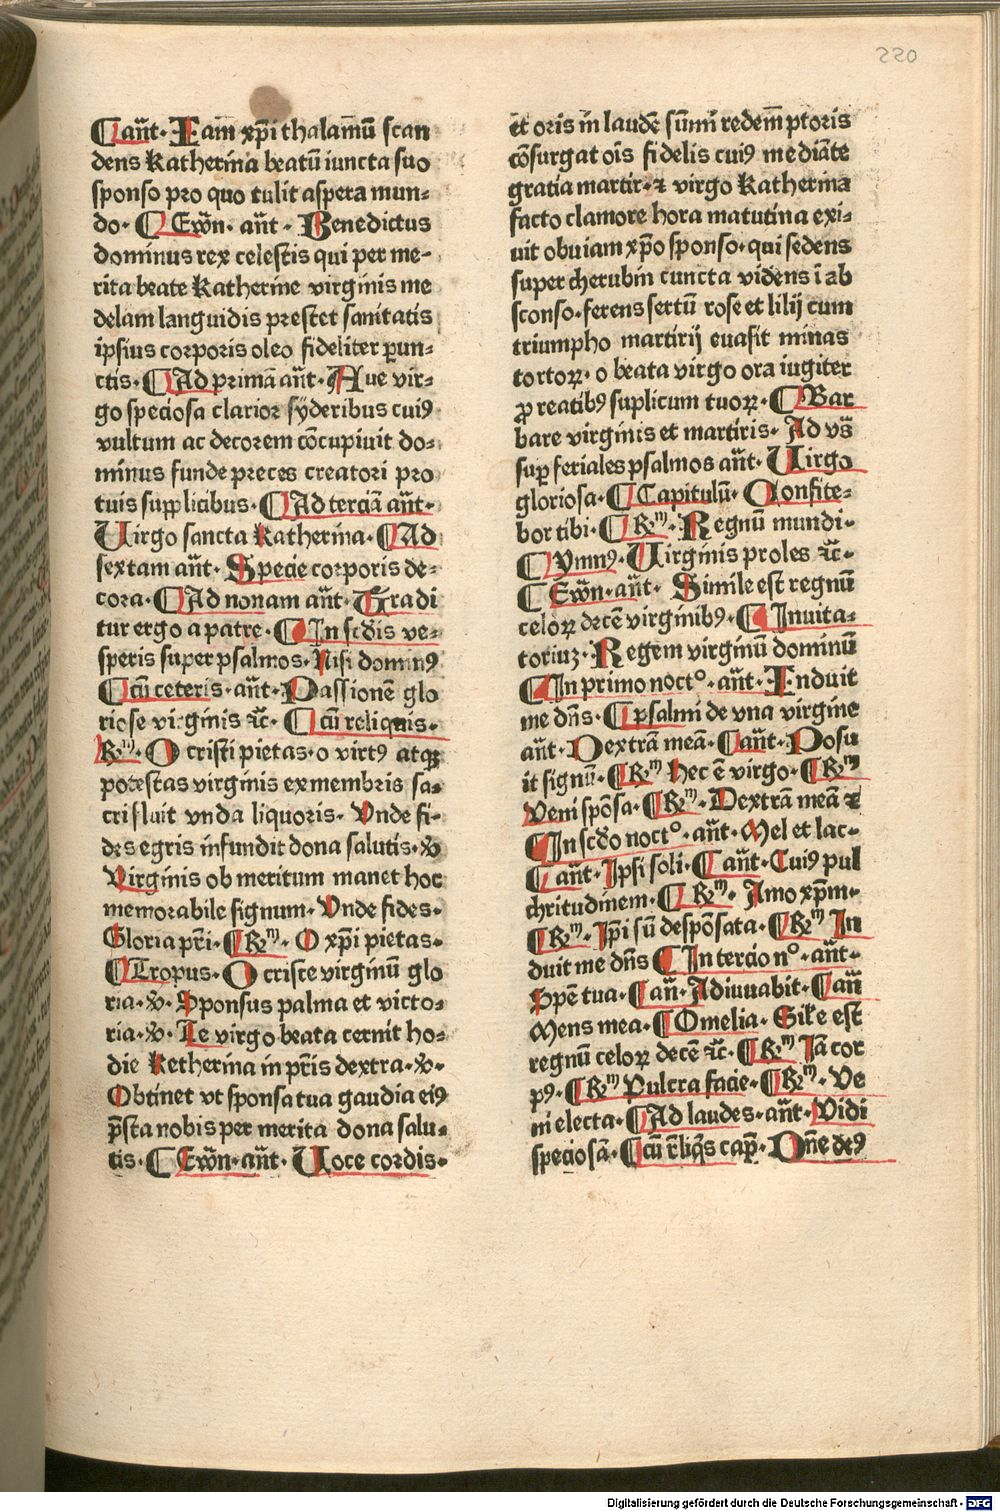 220
¶ an̄t· Iam̄ xp̄i thalamū scan
dens Katherina beatū iuncta suo
sponso pro quo tulit aspera mun⸗
do· ¶ Ew̄n· an̄t· Benedictus
dominus rex celestis qui per me⸗
rita beate Katherine virginis me
delam languidis prestet sanitatis
ipsius corporis oleo fideliter ꝑun⸗
ctis· ¶ Ad primā an̄t· Aue vir⸗
go speciosa clarior syderibus cuiꝰ
vultum ac decorem cōcupiuit do⸗
minus funde preces creatori pro
tuis supplicibus· ¶ Ad terciā an̄t·
Uirgo sancta Katherina· ¶ Ad
sextam an̄t· Specie corporis de⸗
cora· ¶ Ad nonam an̄t· Tradi
tur ergo a patre· ¶ In scd̄is ve⸗
speris super psalmos· Nisi dominꝰ
¶ cū ceteris· an̄t· Passionē glo
riose virginis ꝛc̄· ¶ cū reliquis·
R̄m· O cristi pietas· o virtꝰ atqꝫ
potestas virginis ex membris sa⸗
cri fluit vnda liquoris· Vnde fi⸗
des egris infundit dona salutis· ℣
Virginis ob meritum manet hoc
memorabile signum· Vnde fides·
Gloria pr̄i· ¶ R̄m· O xp̄i pietas·
¶ Tropus· O criste virginū glo
ria· ℣· Sponsus palma et victo⸗
ria· ℣· Te virgo beata cernit ho⸗
die Ketherina in pr̄is dextra· ℣·
Obtinet vt sponsa tua gaudia eiꝰ
p̄sta nobis per merita dona salu⸗
tis· ¶ Ew̄n· an̄t· Uoce cordis·
et oris in laudē sūmi redem̄ptoris
cōsurgat ois fidelis cuiꝰ mediāte
gratia martir· ⁊ virgo Katherina
facto clamore hora matutina exi⸗
uit obuiam xp̄o sponso· qui sedens
super cherubin cuncta videns ī ab
sconso· ferens sertū rose et lilij cum
triumpho martirij euasit minas
tortoꝝ· o beata virgo ora iugiter
ꝓ reatibꝰ suplicum tuoꝝ· ¶ Bar
bare virginis et martiris· Ad vs̄
suꝑ feriales psalmos an̄t· Uirgo
gloriosa· ¶ Capitulū· Confite⸗
bor tibi· ¶ R̄m· Regnū mundi·
¶ Ymnꝰ· Uirginis proles ꝛc̄·
¶ Ew̄n· an̄t· Simile est regnū
celoꝝ decē virginibꝰ· ¶ Inuita⸗
toriuꝫ· Regem virginū dominū
¶ In primo noctº· an̄t· Induit
me dn̄s· ¶ psalmi de vna virgine
an̄t· Dextrā meā· ¶ an̄t· Posu
it signū· ¶ R̄m Hec ē virgo· ¶ R̄m
Veni spōsa· ¶ R̄m· Dextrā meā ⁊
¶ In scd̄o noctº· an̄t· Mel et lac·
¶ an̄t· Ipsi soli· ¶ an̄t· Cuiꝰ pul
chritudinem· ¶ R̄m· Amo xp̄m·
¶ R̄m· Ip̄i sū despōsata· ¶ R̄m In
duit me dn̄s ¶ In tercio nº· an̄t·
Spē tua· ¶ an̄· Adiuuabit· ¶ an̄
Mens mea· ¶ Omelia· Sile est
regnū celoꝝ decē ꝛc̄· ¶ R̄m Iā cor
pꝰ· ¶ R̄m Pulcra facie· ¶ R̄m· Ve
ni electa· ¶ Ad laudes· an̄t· Vidi
speciosā· ¶ cū r̄liq̄s cap̄· Dn̄e deꝰ
Digitalisierung gefördert durch die Deutsche Forschungsgemeinschaft - DFG